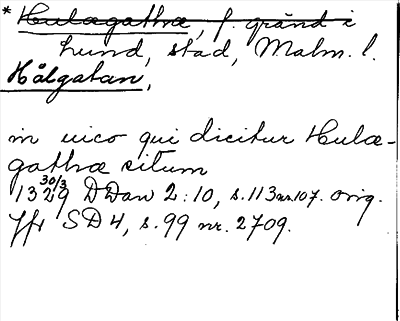 * Hulægathæ, f. gränd i
Lund, stad, Malm. l.
Hålgatan,
in uico qui dicitur Hulæ-
gathæ situm
13 30/3 29 DDan 2:10, s. 113 nr 107. orig.
Jfr SD 4, s. 99 nr. 2709.